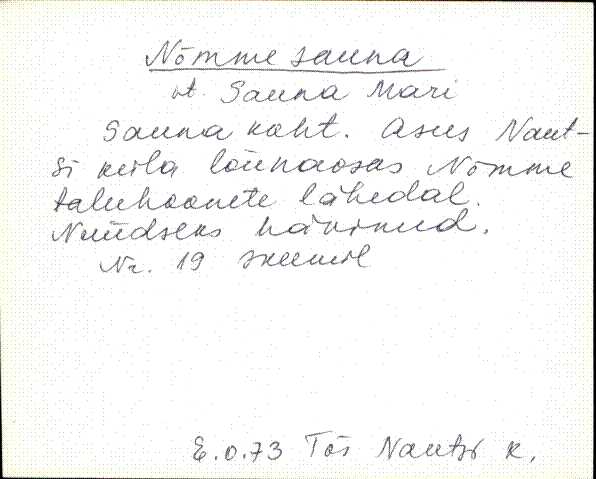 Nõmme sauna
vt. Sauna Mari
Sauna koht. Asus Naut-
si küla lõunaosas Nõmme
taluhoonete lähedal.
Nüüdseks hävinud.
Nr. 19 skeemil
E.O.73 Tõs Nautsi k.